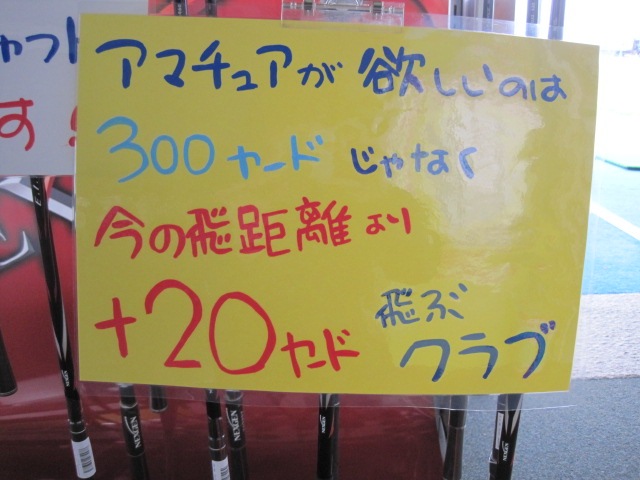 アマチュアが欲しいのは
300ヤードじゃなく
今の飛距離より
+20ヤード飛ぶクラブ
ャフト
す